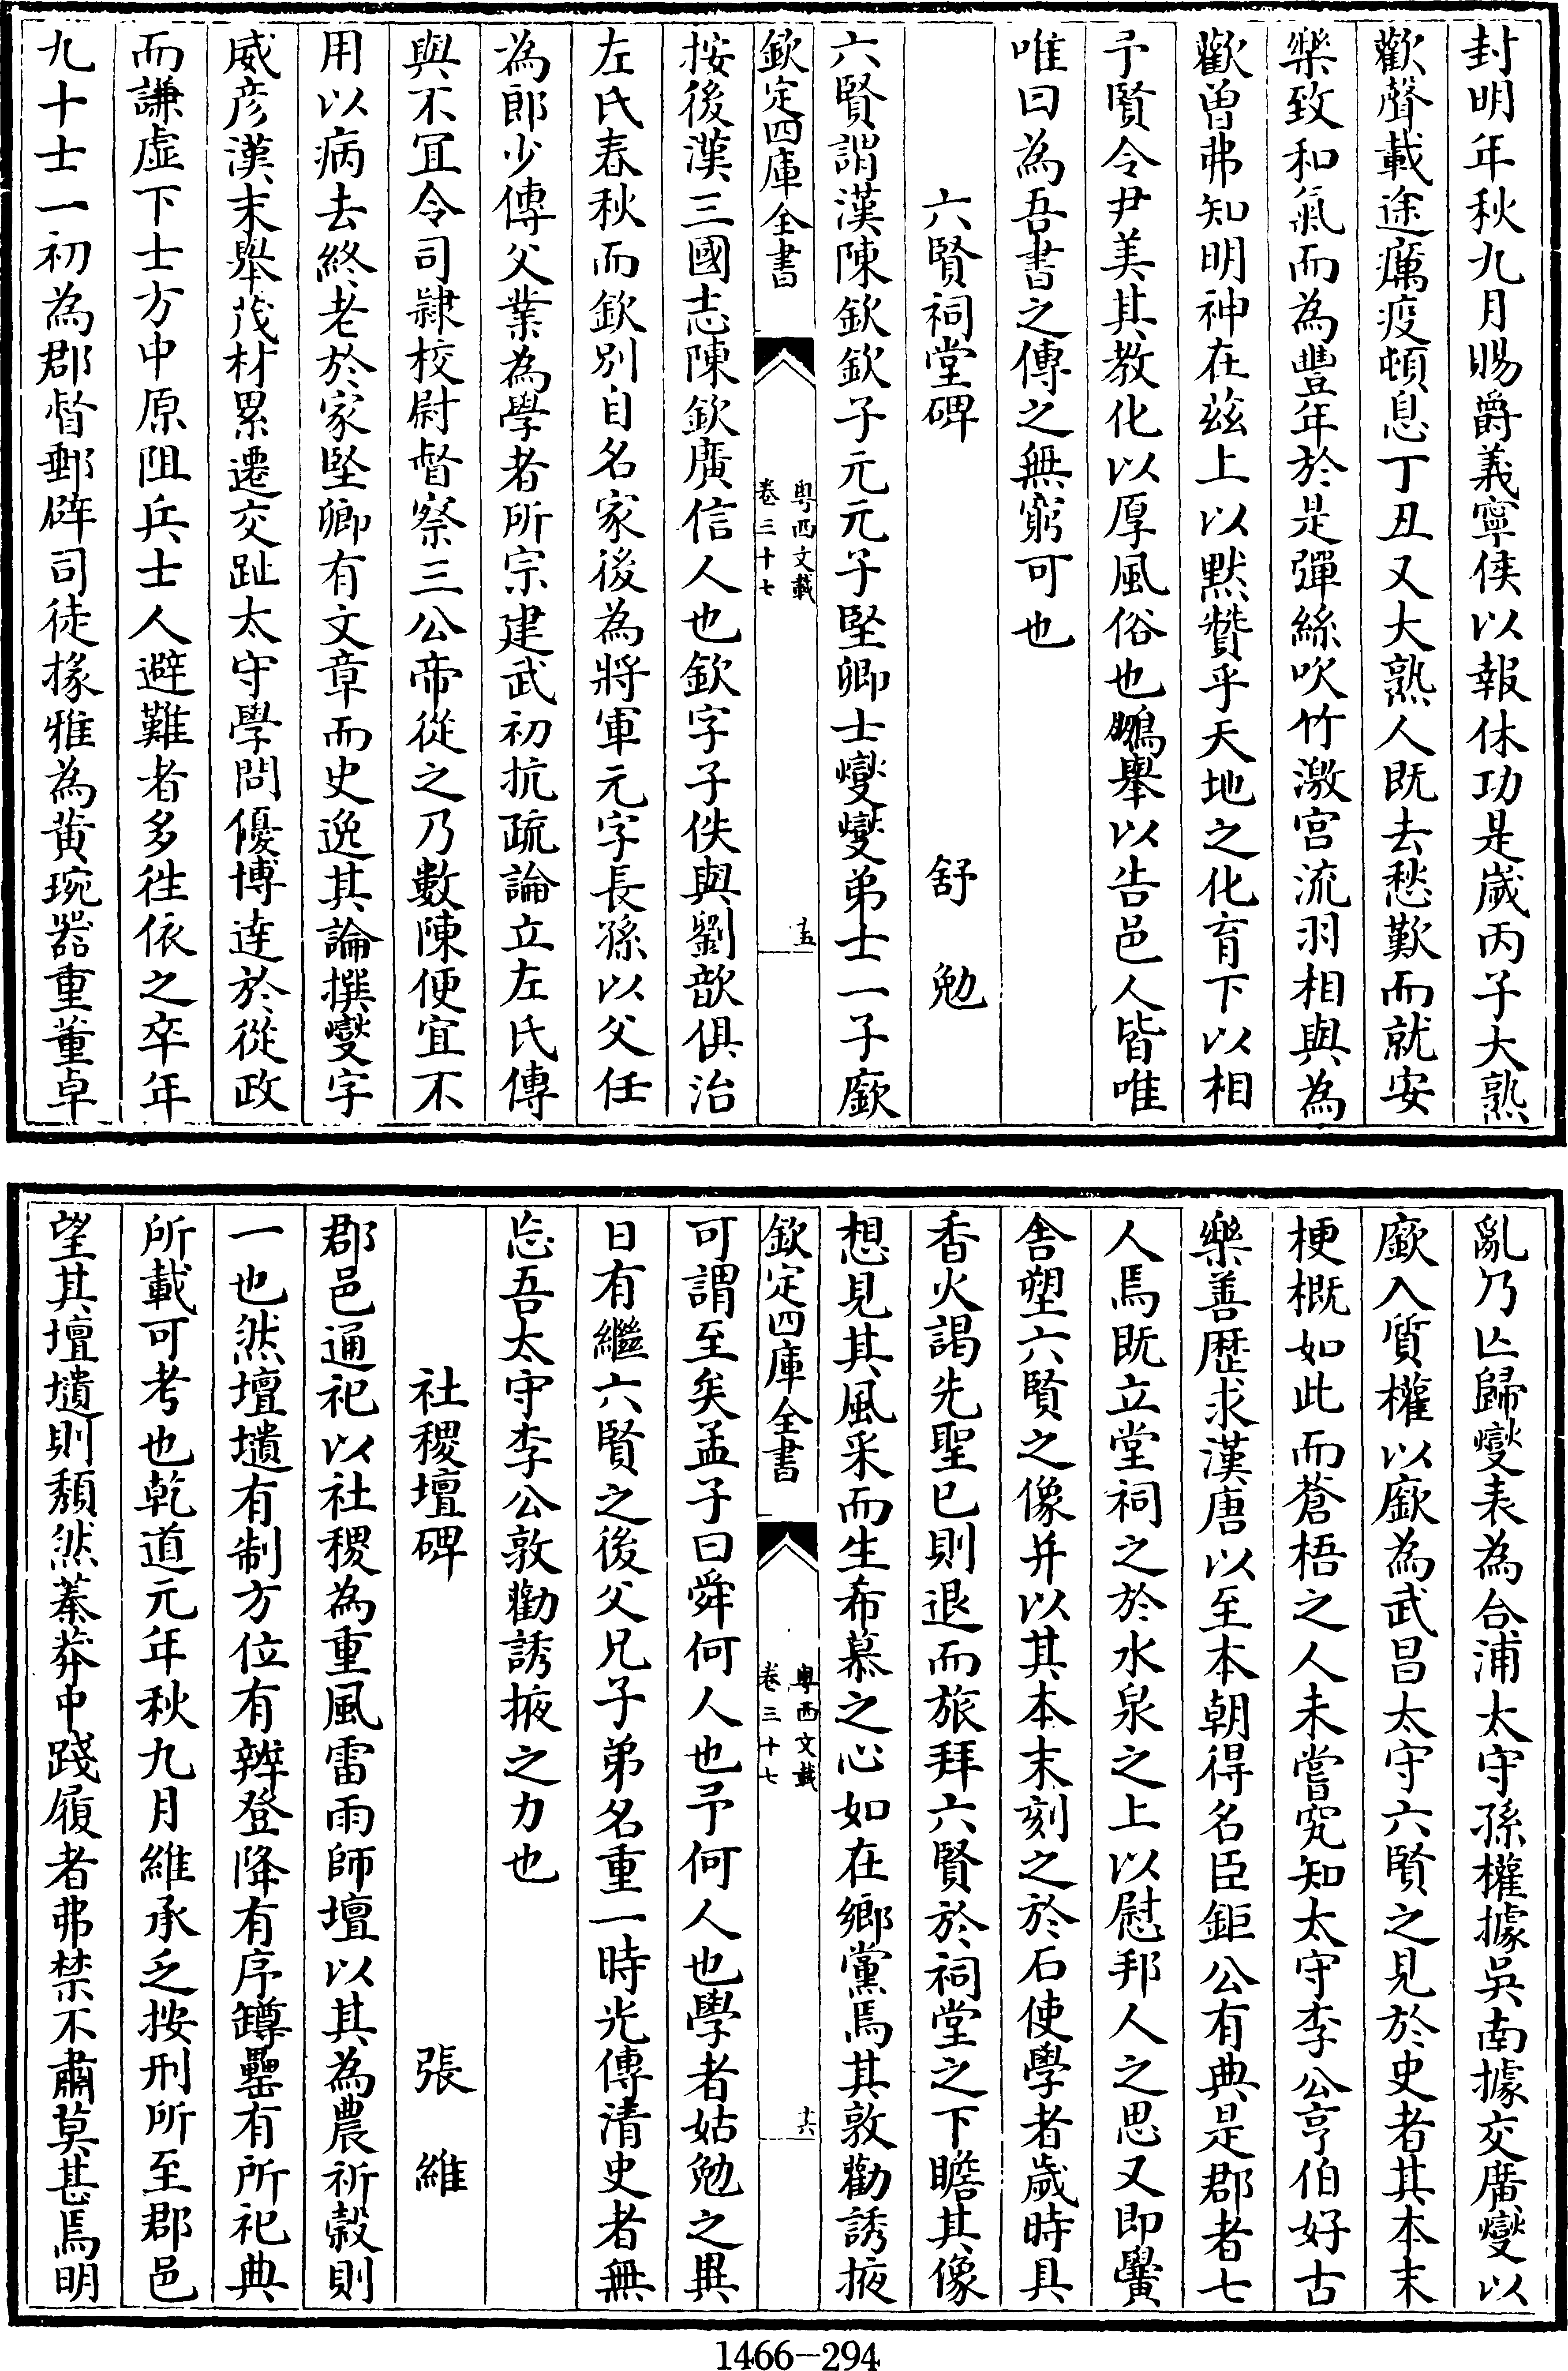 封明年秋九月賜爵義寧侯以報休功是歲丙子大熟
歡聲載途癘疫頓息丁丑又大熟人既去愁歎而就安
樂致和氣而為豐年於是彈絲吹竹激宫流羽相與為
歡曽弗知明神在兹上以黙贊乎天地之化育下以相
予賢令尹美其教化以厚風俗也鵬舉以告邑人皆唯
唯曰為吾書之傳之無窮可也
六賢祠堂碑 舒勉
六賢謂漢陳欽欽子元元子堅卿士燮燮弟士一子廞
欽定四庫全書 粤西文載 卷三十七 十五
按後漢三國志陳欽廣信人也欽字子佚與劉歆俱治
左氏春秋而欽别自名家後為將軍元字長孫以父任
為郎少傳父業為學者所宗建武初抗疏論立左氏傳
與不冝令司隷校尉督察三公帝從之乃數陳便宜不
用以病去終老於家堅卿有文章而史逸其論撰燮字
威彦漢末舉茂材累遷交趾太守學問優博達於從政
而謙虚下士方中原阻兵士人避難者多徃依之卒年
九十士一初為郡督郵辟司徒掾雅為黄琬器重董卓
亂乃亾歸燮表為合浦太守孫權據吳南據交廣燮以
廞入質權以廞為武昌太守六賢之見於史者其本末
梗概如此而蒼梧之人未嘗究知太守李公亨伯好古
樂善歴求漢唐以至本朝得名臣鉅公有典是郡者七
人焉既立堂祠之於水泉之上以慰邦人之思又即黌
舎塑六賢之像并以其本末刻之於石使學者歲時具
香火謁先聖已則退而旅拜六賢於祠堂之下瞻其像
想見其風采而生希慕之心如在鄉黨焉其敦勸誘掖
欽定四庫全書 粤西文載 卷三十七 十六
可謂至矣孟子曰舜何人也予何人也學者姑勉之異
日有繼六賢之後父兄子弟名重一時光傳清史者無
忘吾太守李公敦勸誘掖之力也
社稷壇碑 張維
郡邑通祀以社稷為重風雷雨師壇以其為農祈穀則
一也然壇壝有制方位有辨登降有序罇罍有所祀典
所載可考也乾道元年秋九月維承乏按刑所至郡邑
望其壇壝則頽然蓁莽中踐履者弗禁不肅莫甚焉明
1466-294